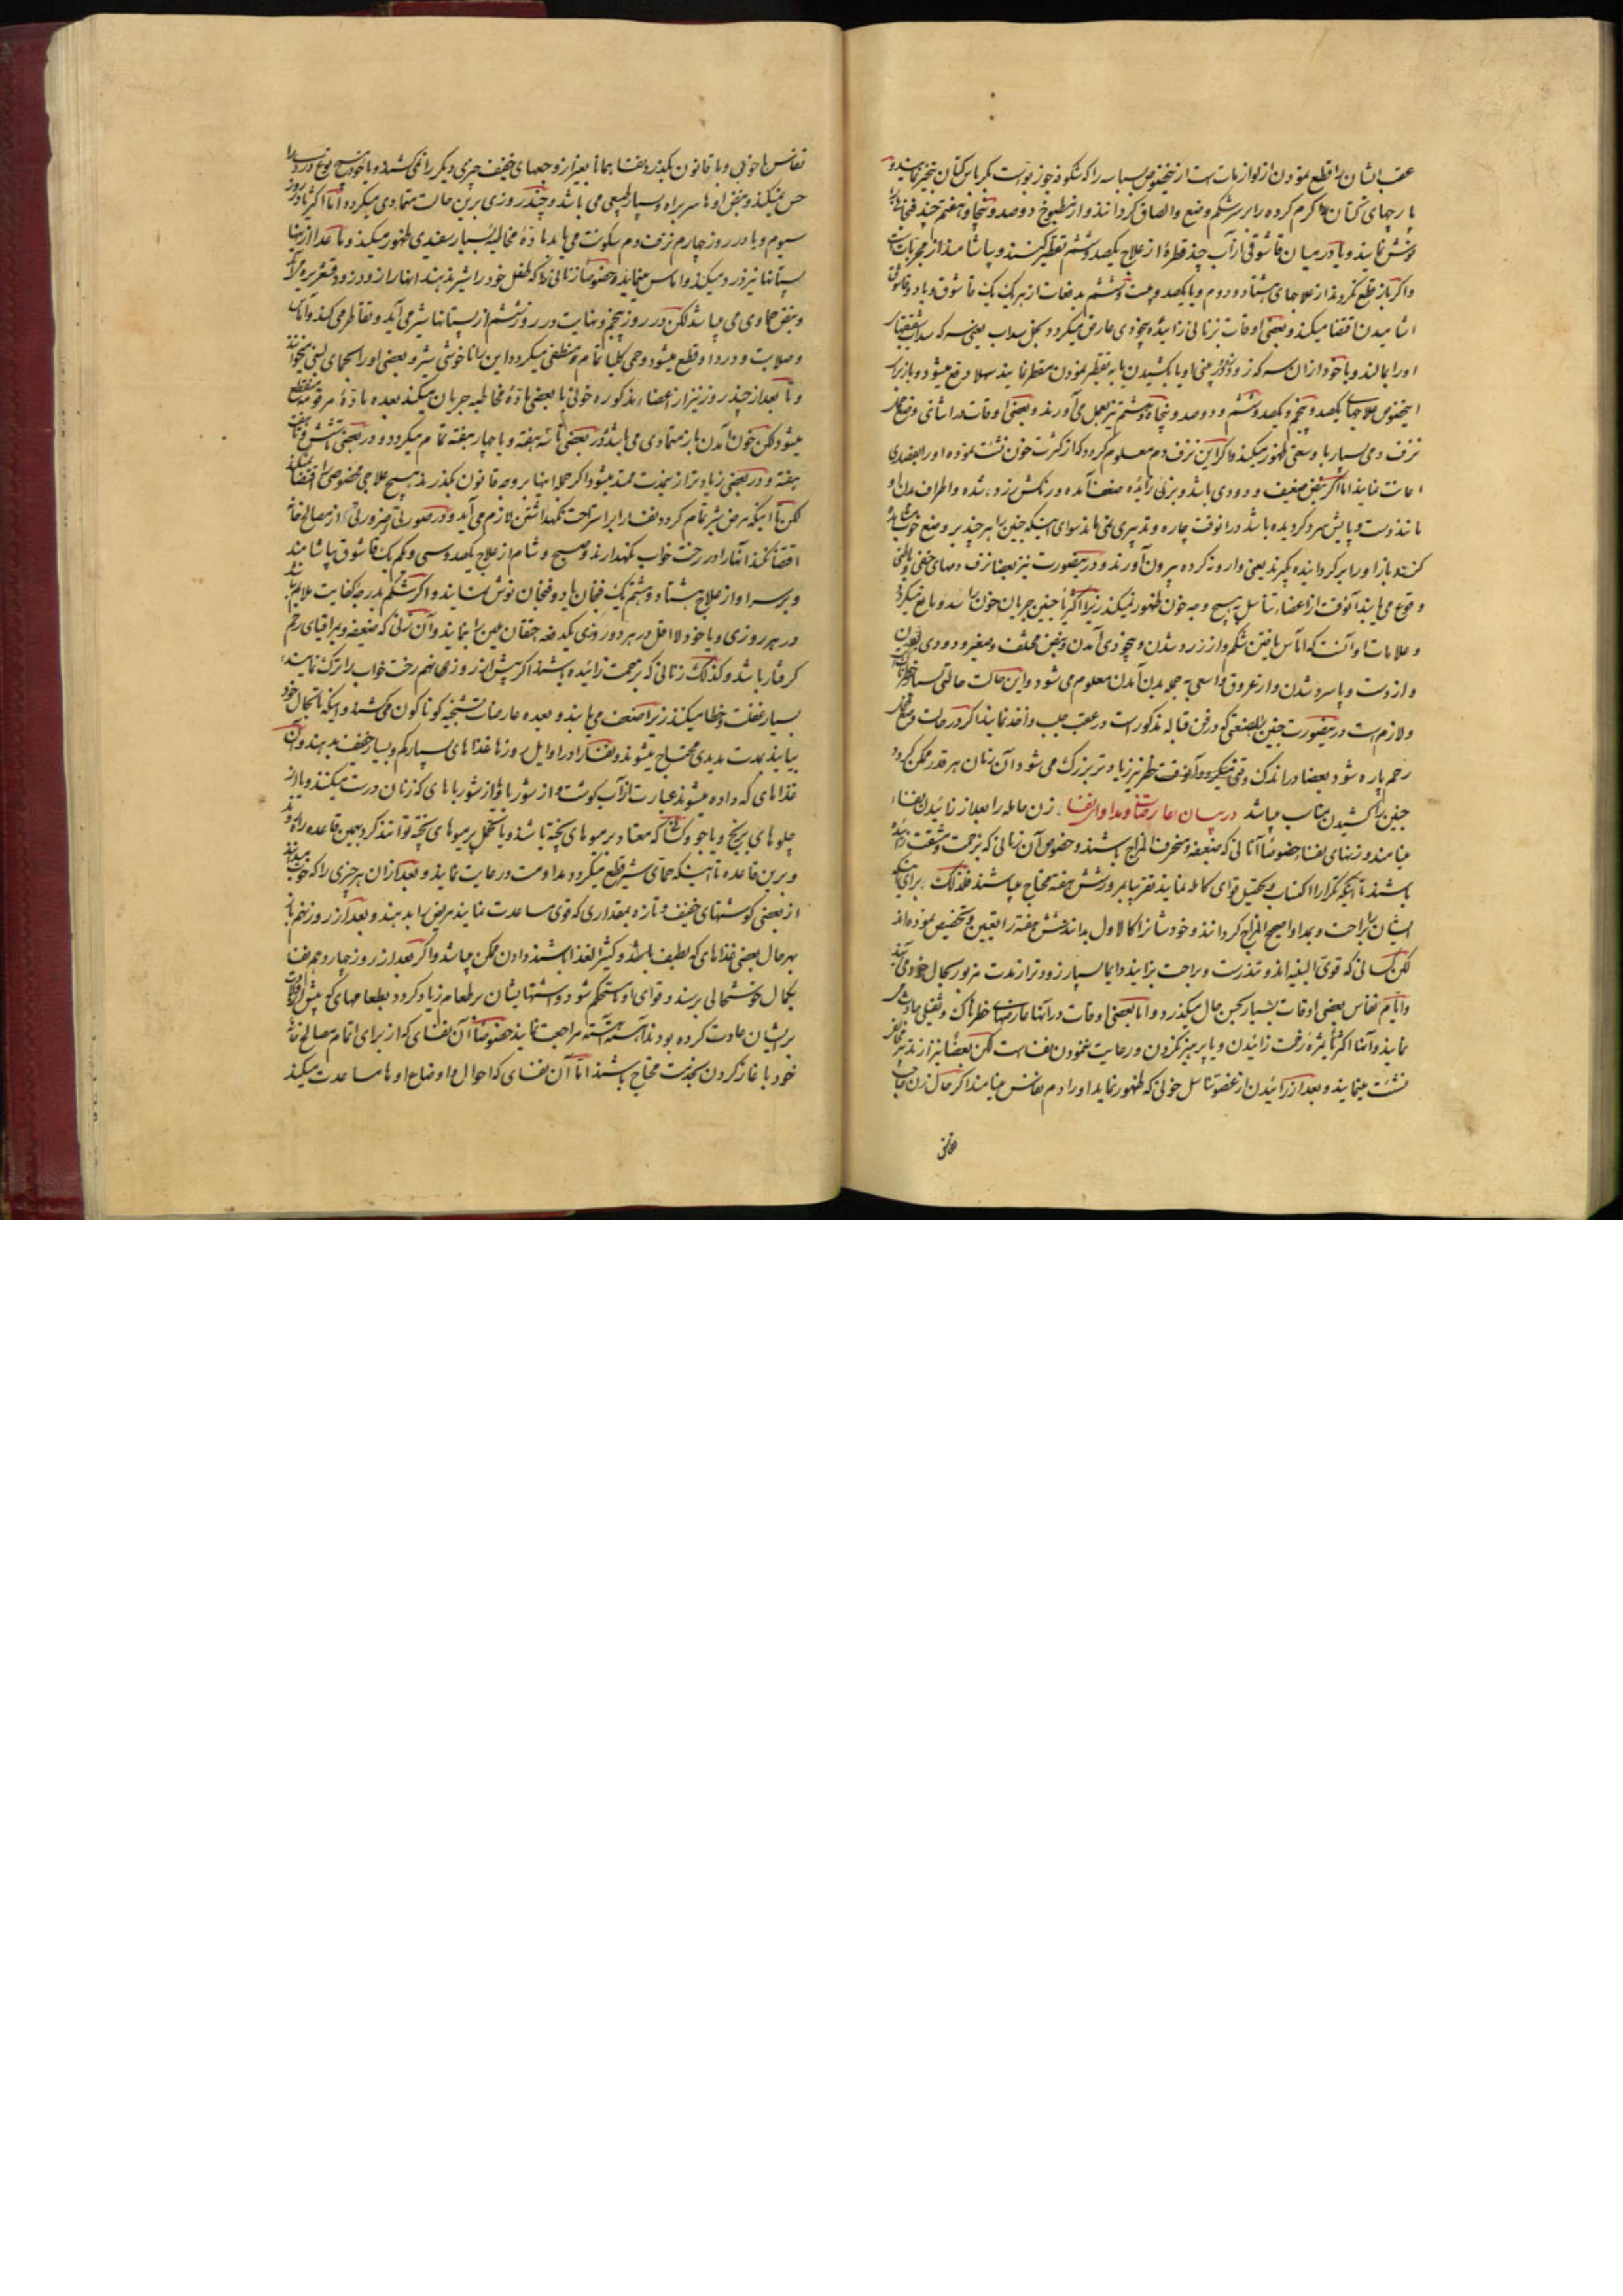 عقب ایشان را قطع نمودن از لوازمات است از بخصوص بسباسه را که شکوفه جوز بواست بکرباس کتان تبخیر نمایند و
پارچهای کتان را کرم کرده را برسر شکم وضع والصاق کردانند واز مطبوخ دوصد و پنجاه و هفتم چند فنجان
نوش نمایند ویا در میان قاشوقی از آب چند قطره از علاج یکصد و ششم تقطیر کنند و بیاشامند از مجربات است
واکر باز قطع نکردند از علاجهای هشتاد و دوم ویا یکصد و بیست و ششم بدفعات از هر یک یک قاشوق ویا دو قاشوق
آشامیدن اقتضا میکند و بعضی اوقات زنانی زائیده بیخودی عارض میکردد بخل سداب یعنی سرکه سداب
اورا بمالند ویا خود از آن سرکه زود زود بینی او یا بکشیدن یا به تقطیر نمودن مقطر نمایند سهلا دفع میشود و باز برای
اینخصوص علاجهای یکصد و پنجم و یکصد و ششم و دوصد و پنجاه و هشتم نیز بعمل می آورند و بعضی اوقات در اثنای وضع حمل
نزف دمی بسیار با وسعتی ظهور میکند واکر این نزف دم معلوم کردد که از کثرت خون نشئت نموده اورا بفصدی
اعانت نمایند اما اکر نبض ضعیف و دودی باشد و بزنی زائیده ضعف آمده و رنکش زرد شده واطراف بدن او
مانند دست و پایش سرد کردیده باشد در آنوقت چاره و تدبیری نمی ماند سوای اینکه جنین را هر چند بر وضع خوب نباشد
کشند باز اورا برکردانیده بکیرند یعنی وارونه کرده بیرون آورند و در اینصورت نیز بعضا نزف دمهای خفی و باطنی
وقوع می یابند آنوقت از اعضاء تناسل به هیچ وجه خون ظهور نمیکند زیرا اکثریا جنین جریان خون را سد و مانع میکردد
وعلامات او آنست که آماس یافتن شکم واز زرد شدن و بیخودی آمدن و نبض مختلف و صغیر و دودی بودن
واز دست و پا سرد شدن واز عروق واسعی به جمله بدن آمدن معلوم می شود واین حالت حالتی بسیار خطرناک
ولازم است در اینصورت جنین را بصنعتی که در فن قباله مذکور است در عقب جلب واخذ نمایند اکر در حالت وضع حمل
رحم پاره شود بعضا در اندک وقتی میکردد و آنوقت خطر نیز زیاد تر بزرک می شود آن زمان هر قدر ممکن کردد
جنین را کشیدن مناسب میباشد در بیان عارضات ومداوای نفسا زن حامله را بعد از زائیدن نفساء
مینامند وزنهای نفساء خصوصا آنانی که ضعیف و منحرف المزاج باشند و خصوص آن زنانی که بزحمت و مشقت زائیده
باشند تا اینکه تکرارا اکتساب و تحصیل قوای کامله نمایند تقریبا بمرور شش هفته محتاج میباشند فلذلک برای اینکه
ایشان را براحت و بمداوا صحیح المزاج کردانند و خودشانرا کالاول بدانند شش هفته را تعیین و تخصیص نموده اند
لکن کسانی که قوی البنیه اند و تندرست و براحت بزایند دایما بسیار زودتر از مدت مزبور بحال خود می آیند
وایام نفاس بعضی اوقات بسیار بحسن حال میکذرد و اما بعضی اوقات در آنها عارضهای خطرناک و ثقیلی حادث می
نمایند و آنها اکثر ثمره زحمت زائیدن ویا پرهیز نکردن و رعایت ننمودن نفساست لکن بعضا نیز از
نشئت مینمایند و بعد از زائیدن از عضو تناسل خونی که ظهور نماید اورا دم نفاس مینامند اکر حال زن
نفاس با خوبی و با قانون بکذرد نفسا همانا بغیر از وجعهای خفیف چیزی دیکر را نمی کشند و با خود هیچ نوع درد را
حس نمیکند و نبض اوها سربراه و بسیار طبیعی می باشد و چند روزی برین حالت متمادی میکردد اما اکثریا در روز
سیوم ویا در روز چهارم نزف دم سکونت می یابد ماده مخاطیه بسیار سفیدی ظهور میکند و ما عدا از اینها
پستانها نیز درد میکند و آماس مینماید وخصوصا زنانی را که طفل خود را شیر ندهند آنها را زود زود قشعریره می آید
و نبض حماوی می میباشد لکن در روز پنجم و نهایت در روز ششم از پستانها شیر می آید و تقاطر می کند و آماس
و صلابت و درد او قطع میشود و حمی کلیا تمام و منطفی میکردد این را ناخوشی شیر و بعضی او را بحمای لبنی میخوانند
و تا بعد از چند روز نیز از اعضاء مذکوره خونی با بعضی ماده مخاطیه جریان میکند بعده ماده مرقومه منقطع
میشود لکن خون آمدن باز متمادی می باشد و در بعضی تا سه هفته ویا چهار هفته تمام میکردد و در بعضی تا شش و تا هفت
هفته و در بعضی زیادتر از اینمدت ممتد میشود اکر جمله اینها بر وجه قانون بکذرند هیچ علاجی مخصوص اقتضا نمیکند
لکن تا اینکه مرض شیر تمام کردد نفسا را براستراحت نکهداشتن لازم می آید و در صورتی ضرورتی از مصالح خانه
اقتضا نکند آنها را در رخت خواب نکهدارند و صبح و شام از علاج یکصد و سی و یکم یک قاشوق بیاشامند
و بر سر او از علاج هشتاد و هشتم یک فنجان یا دو فنجان نوش نمایند و اکر شکم بدرجه کفایت ملایم نباشد
در هر روزی ویا خود لااقل در هر دو روزی یکدفعه احتقان ملین را نمایند و آن زنانی که ضعیف و براقیای رحم
کرفتار باشد و کذلک زنانی که بزحمت زائیده باشند اکر پیش از روز نهم رخت خواب را ترک نمایند
بسیار غفلت و خطا میکنند زیرا ضعف می یابند و بعده عارضات تشنجیه کوناکون می کشند و اینکه تا بحال خود
بیایند بمدت مدیدی محتاج میشوند و نفسا را در اوایل روزها غذاهای بسیار کم و بسیار خفیف بدهند و آن
غذاهای که داده میشوند عبارت از آب کوشت و از شوربا و از شورباهای که زنان درست میکنند و یا از
چلوهای برنج ویا جو و کسانی که معتاد بر میوهای پخته باشند ویا تحمل بر میوهای پخته توانند کرد بهمین قاعده راه روند
و برین قاعده تا اینکه حمای شیر قطع میکردد مداومت و رعایت نمایند و بعد از آن هر چیزی را که خوب میدانند
از بعضی کوشتهای خفیف و تازه بمقداری که قوی مساعدت نمایند مریض را بدهند و بعد از روز نهم باز
بهرحال بعضی غذاهای که لطیف باشد و کثیر الغذا باشند دادن ممکن میباشد و اکر بعد از روز چهاردهم نفسا
بکمال خوشحالی برسند و قوای او مستحکم شود و اشتهایشان بر طعام زیاد کردد بطعامهای که پیش از ولادت
بر ایشان عادت کرده بودند آهسته آهسته مراجعت نمایند خصوصا آن نفسای که از برای اتمام مصالح خانه
خود باغاز کردن بخدمت محتاج باشند اما آن نفسای که احوال و اوضاع اوها مساعدت میکنند